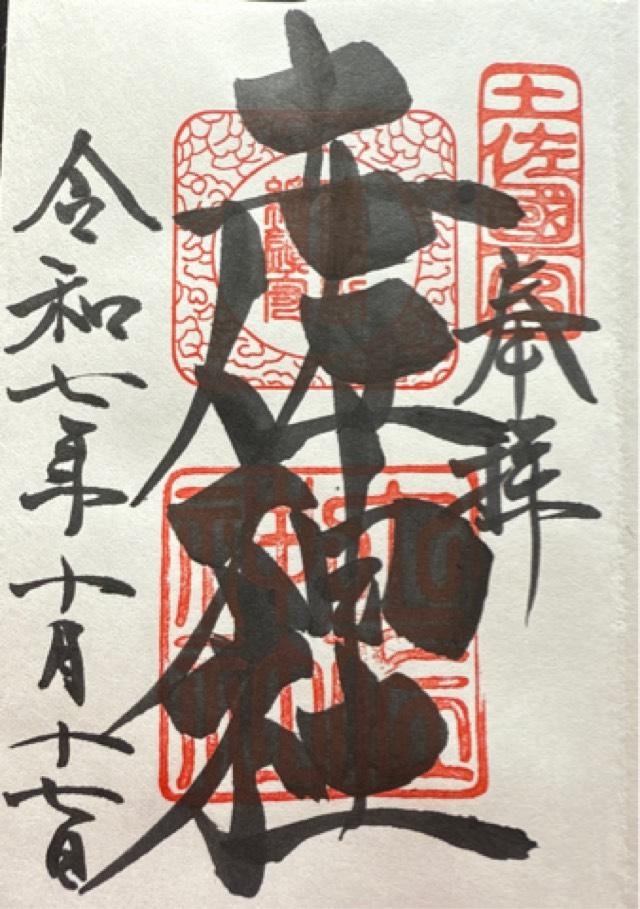 土佐國一宮
奉拝
土佐神社
令和七年十月十七日